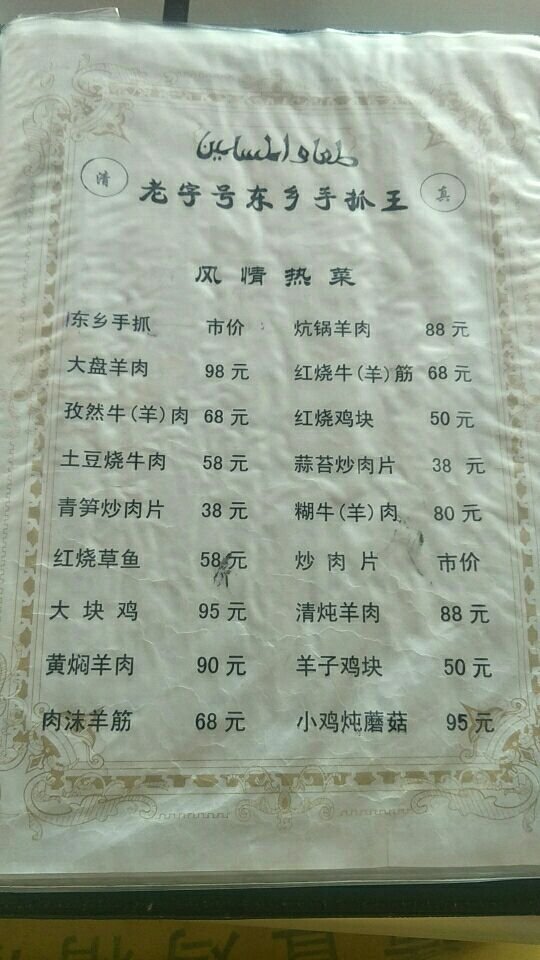 طعام المسلمين
清 老字号东乡手抓王 真
风情热菜
东乡手抓 市价 炕锅羊肉 88元
大盘羊肉 98元 红烧牛(羊)筋 68元
孜然牛(羊)肉 68元 红烧鸡块 50元
土豆烧牛肉 58元 蒜苔炒肉片 38元
青笋炒肉片 38元 糊牛(羊)肉 80元
红烧草鱼 58元 炒肉片 市价
大块鸡 95元 清炖羊肉 88元
黄焖羊肉 90元 羊子鸡块 50元
肉沫羊筋 68元 小鸡炖蘑菇 95元